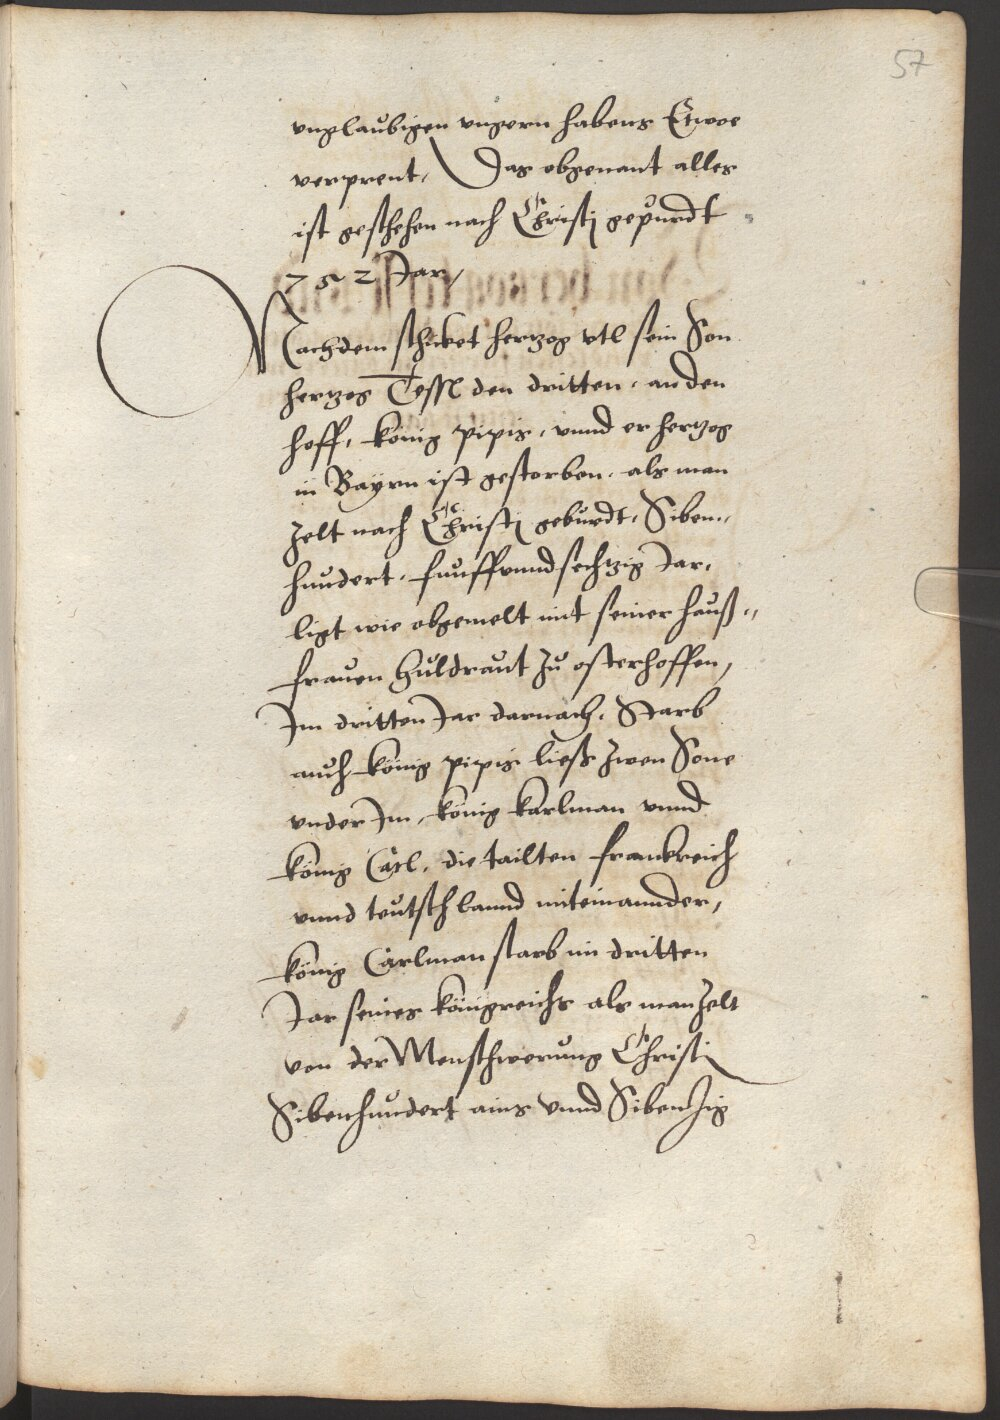 57
vnglaubigen vngern habens Etwoe
verprent, Das obgenant alles
ist geschehen nach Christj gepurdt
752 Jar,
Nachdem schicket hertzog vtl sein Son
hertzog Tessl den dritten, an den
hoff, konig pipis, vnnd er hertzog
in Bayrn ist gestorben, als man
zelt nach Christj geburdt, Siben„
hundert, funffvnndsechtzig Jar,
ligt wie obgemelt mit seiner hauß„
frauen huldraut zu osterhoffen,
Im dritten Jar darnach, Starb
auch konig pipis ließ zwen Sone
vnder Im, konig karlman vnnd
konig Carl, die tailten franckreich
vnnd teutschlannd miteinannder,
konig Carlman starb im dritten
Jar seines konigreichs als man zelt
von der Menschwerung Christj
Sibenhundert ains vnnd Sibenzig